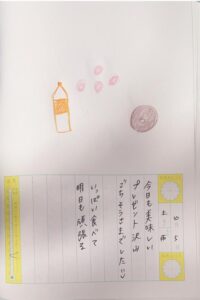 今日も美味しい
プレゼント沢山
ごちそうさまでした♡
いっぱい食べて
明日も頑張る